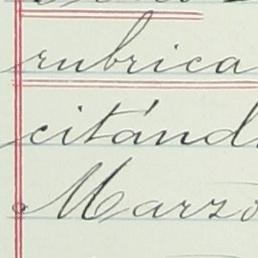 rubrica
citánd
Marzo